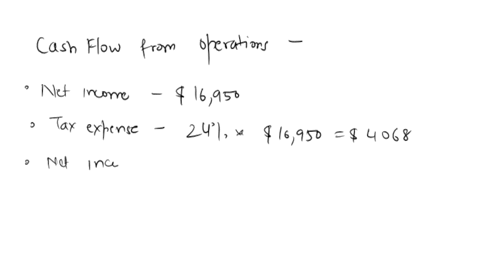 Cash Flow from operations –
• Net income – $ 16,950
• Tax expense – 24% × $ 16,950 = $ 4068
• Net inc